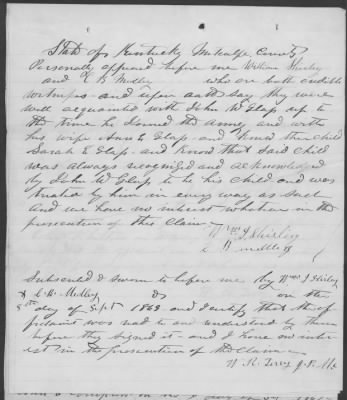 State of Kentucky Metcalfe County
Personally appeared before me William Shirley
and C B Medley who are both credible
witness and upon oath say they were
well acquainted with John W Glass up to
the time he Joined the army and with
his wife Ann E Glass and know their child
Sarah E Glass and know that said child
was always recognized and acknowledged
by John W Glass to be his child and was
treated by him in every way as such
And we have no interest whatever in the
prosecution of this Claim
Wm J Shirley
C B Medley
Subscribed & sworn to before me by Wm J Shirley
& C. B. Medley on the
day of Sept 1863 and I certify that the
was read to and understood by them
before they signed it and I have no inter
est in the prosecution of the Claim
W. R. Terry J. P. M.C